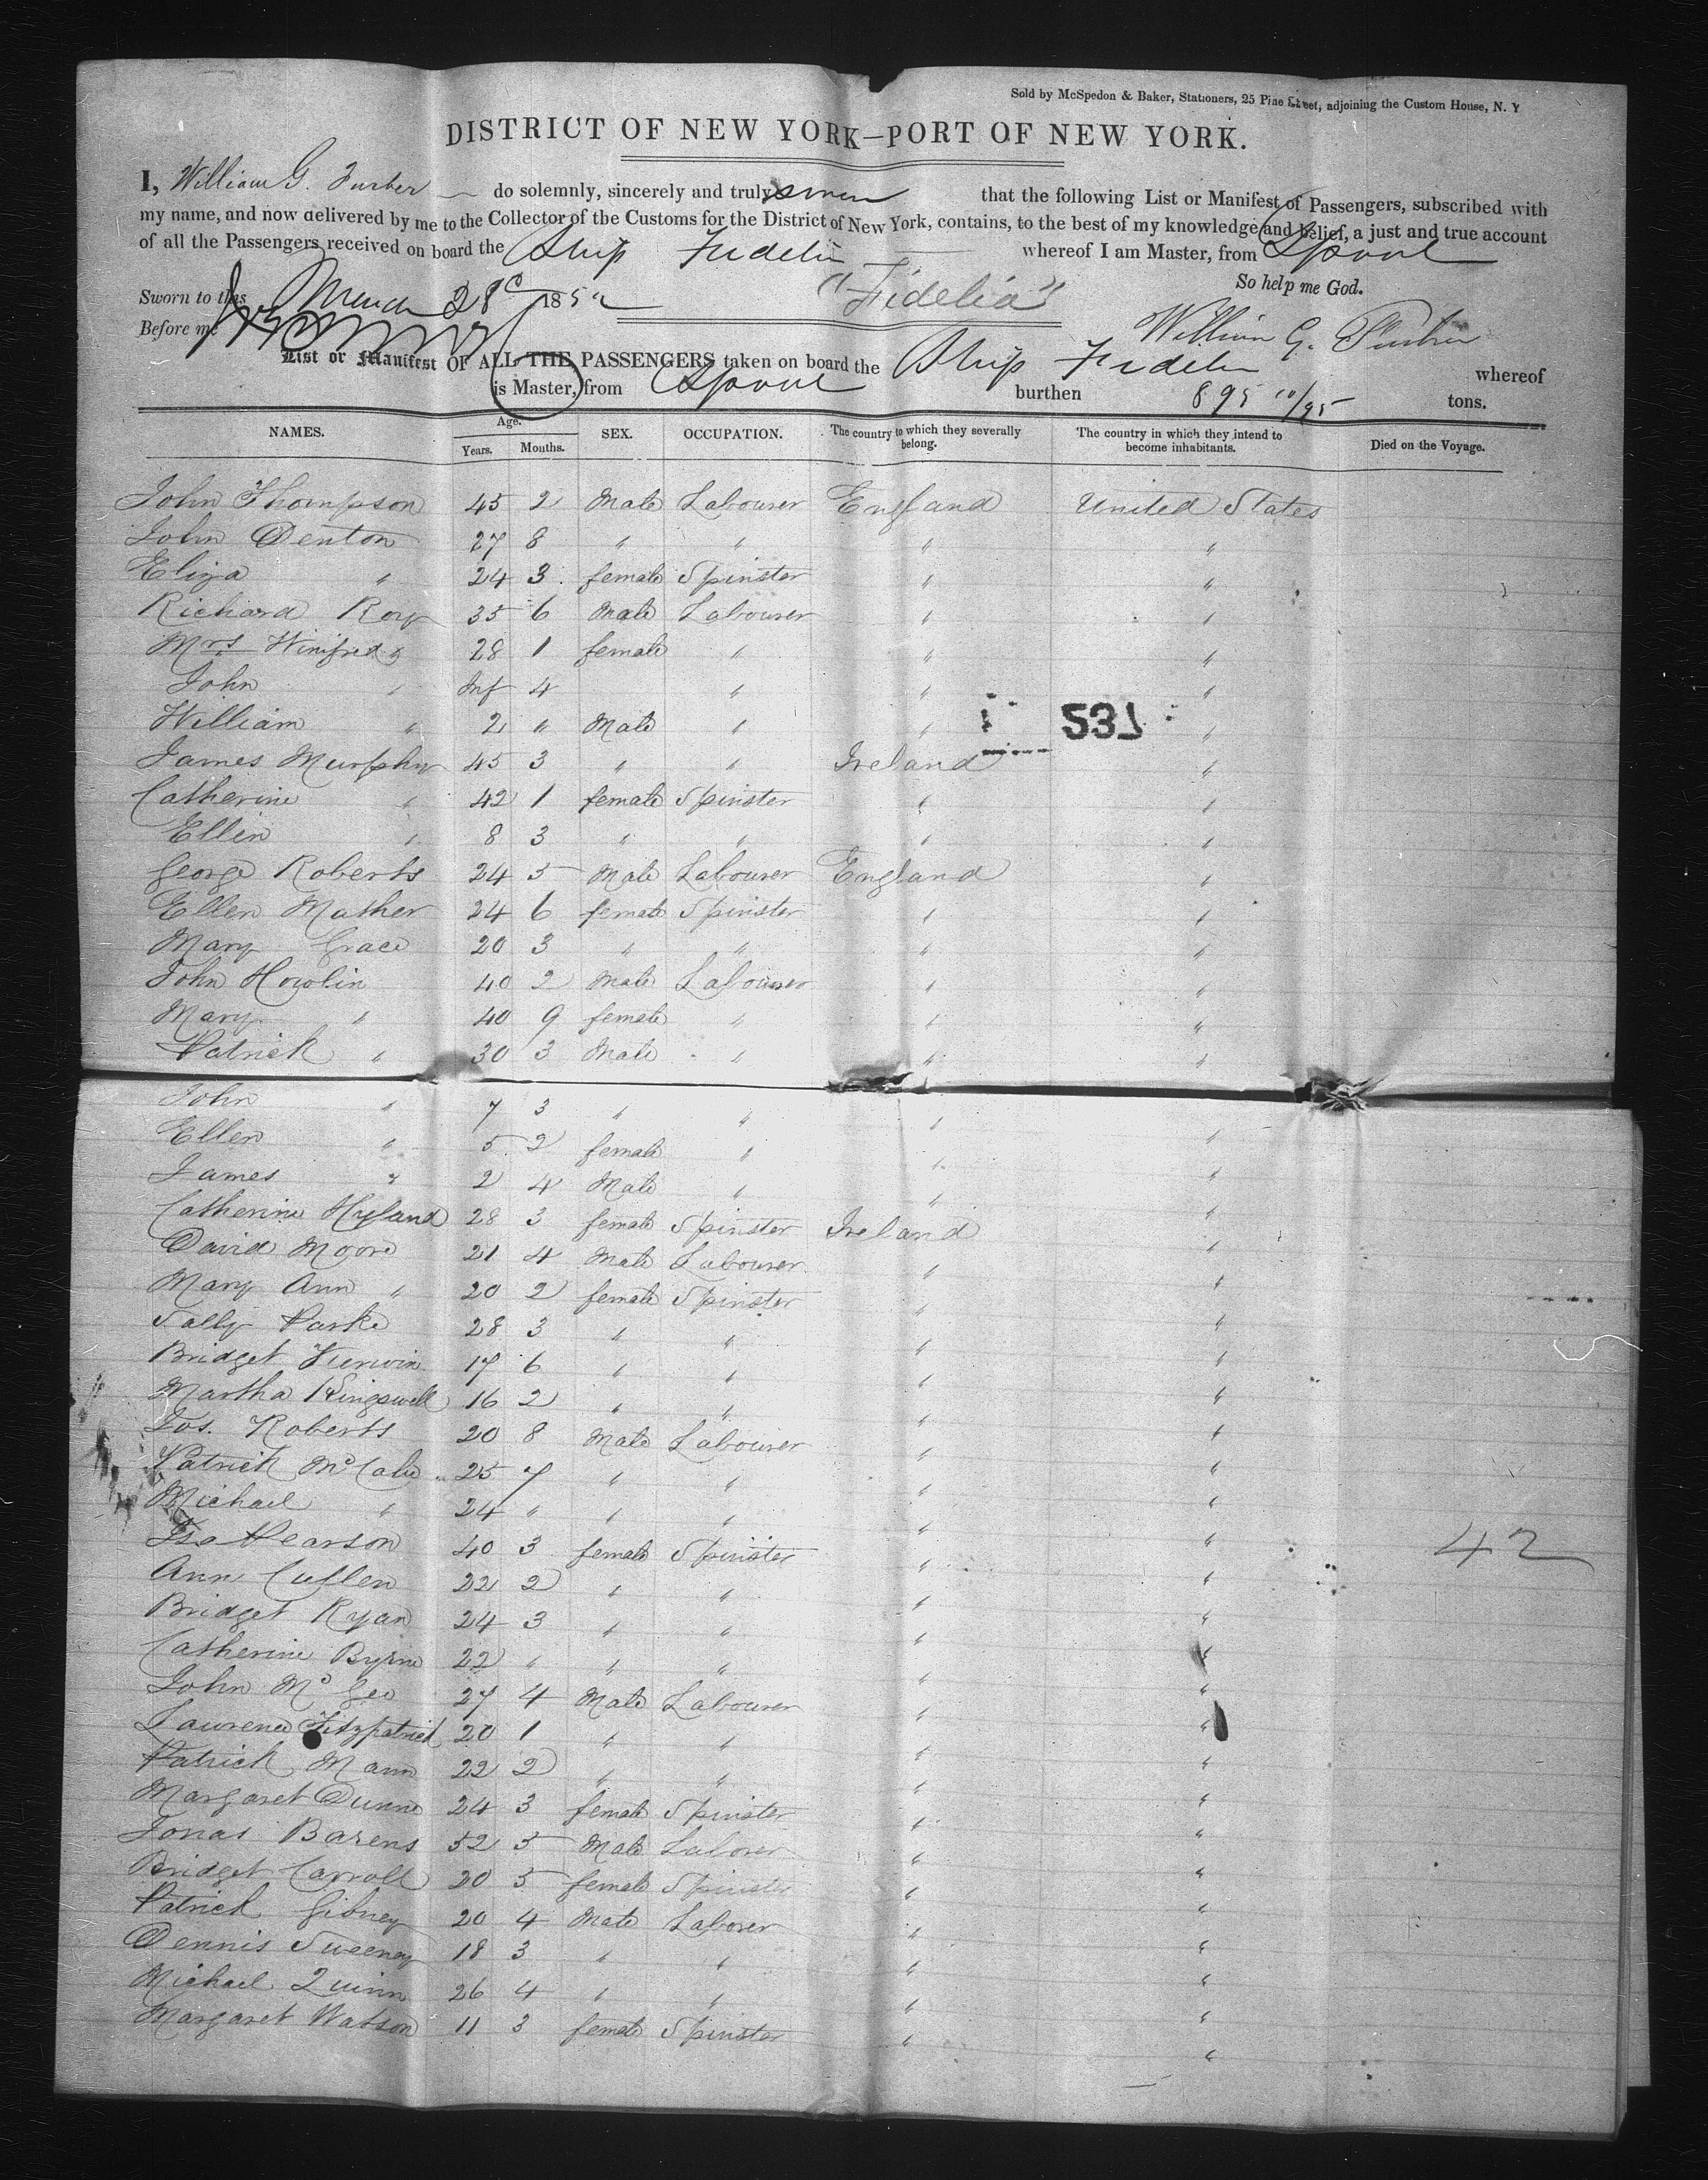 Sold by McSpedon & Baker, Stationers, 25 Pine Street, adjoining the Custom House, N. Y
DISTRICT OF NEW YORK—PORT OF NEW YORK.
I, William G. Furber do solemnly, sincerely and truly swear that the following List or Manifest of Passengers, subscribed with
my name, and now delivered by me to the Collector of the Customs for the District of New York, contains, to the best of my knowledge and belief, a just and true account
of all the Passengers received on board the Ship Fidelia whereof I am Master, from Lpool
So help me God.
Sworn to this March 28 185
"Fidelia"
Before me
William G. Furber
List or Manifest OF ALL THE PASSENGERS taken on board the Ship Fidelia whereof
is Master, from Lpool burthen 895 10/95 tons.
NAMES. Age. Years. Months. SEX. OCCUPATION. The country to which they severally belong. The country in which they intend to become inhabitants. Died on the Voyage.
John Thompson 45 2 Male Labourer England United States
John Denton 27 8 " " " "
Eliza " 24 3 female Spinster " "
Richard Roy 35 6 Male Labourer " "
Mrs Winifred " 28 1 female " " "
John " Inf 4 " " "
William " 2 " Male " " "
531
James Murphy 45 3 " " Ireland "
Catherine " 42 1 female Spinster " "
Ellen " 8 3 " " " "
George Roberts 24 5 Male Labourer England "
Ellen Mather 24 6 female Spinster " "
Mary Grace 20 3 " " " "
John Howlin 40 2 Male Labourer " "
Mary " 40 9 female " " "
Patrick " 30 3 Male " " "
John " 7 3 " " " "
Ellen " 5 2 female " " "
James " 2 4 Male " " "
Catherine Hyland 28 3 female Spinster Ireland "
David Moore 21 4 Male Labourer " "
Mary Ann " 20 2 female Spinster " "
Sally Parke 28 3 " " " "
Bridget Kerwin 17 6 " " " "
Martha Kingswell 16 2 " " " "
Jos. Roberts 20 8 Male Labourer " "
Patrick McCabe 25 7 " " " "
Michael " 24 " " " " "
Pearson 40 3 female Spinster " "
42
Ann Cullen 22 2 " " " "
Bridget Ryan 24 3 " " " "
Catherine Byrne 22 " " " " "
John McGee 27 4 Male Labourer " "
Laurence Fitzpatrick 20 1 " " " "
Patrick Mann 22 2 " " " "
Margaret Dunne 24 3 female Spinster " "
Jonas Barens 52 5 Male Laborer " "
Bridget Carroll 20 5 female Spinster " "
Patrick Gibney 20 4 Male Laborer " "
Dennis Sweeney 18 3 " " " "
Michael Quinn 26 4 " " " "
Margaret Watson 11 3 female Spinster " "